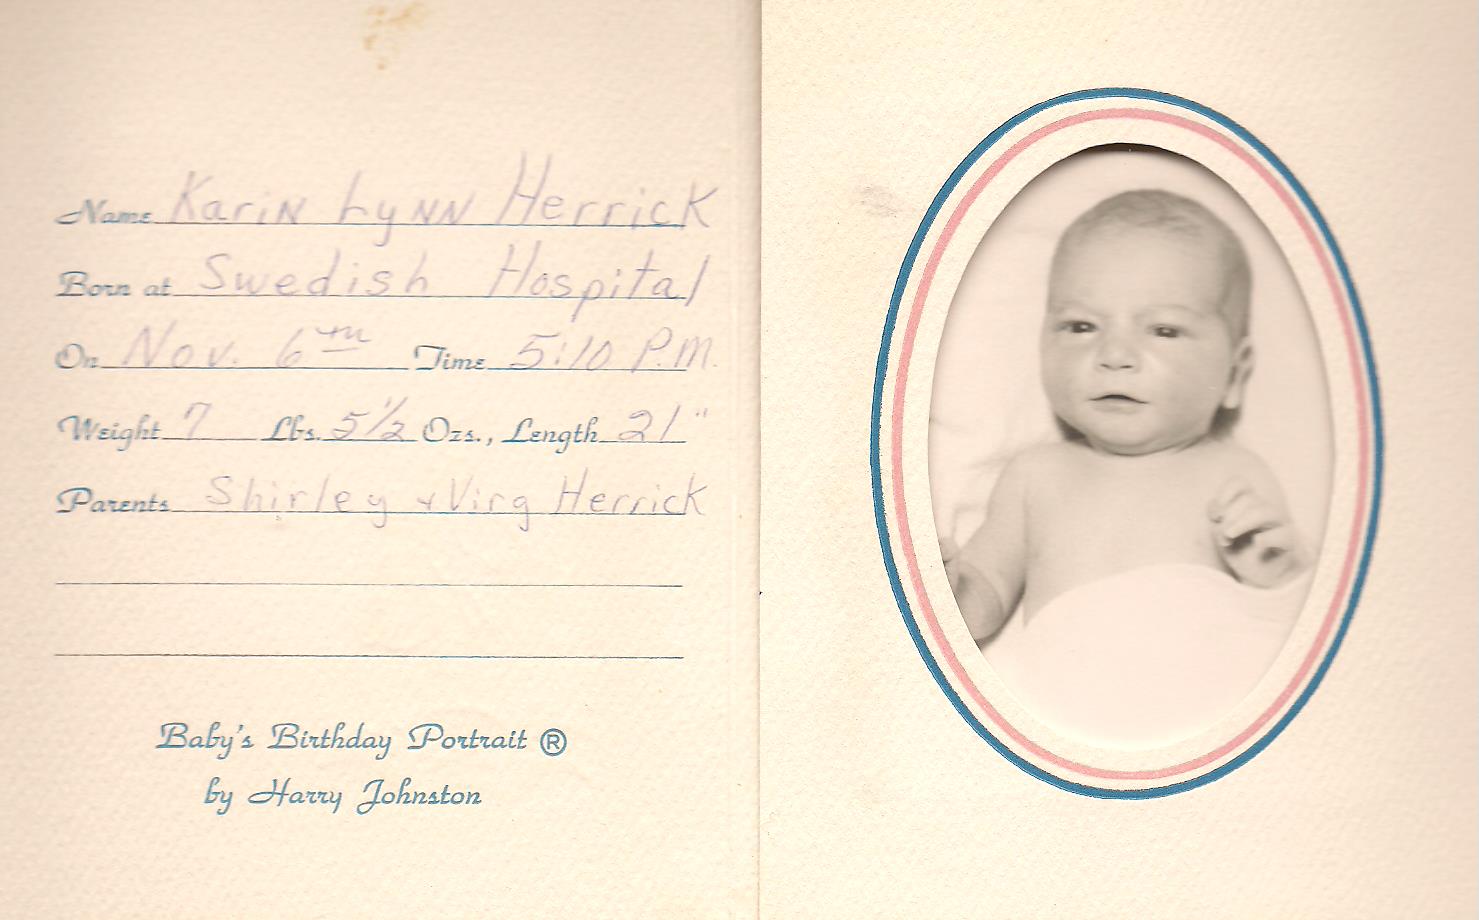 Name Karin Lynn Herrick
Born at Swedish Hospital
On Nov. 6th Time 5:10 P.M.
Weight 7 Lbs. 5 1/2 Ozs., Length 21"
Parents Shirley + Virg Herrick
Baby's Birthday Portrait ®
by Harry Johnston